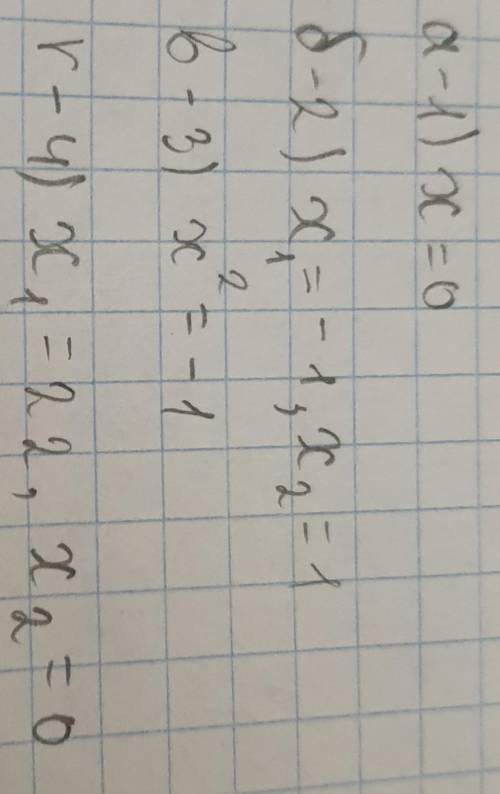 а - 1) x = 0
б - 2) x₁ = - 1, x₂ = 1
в - 3) x² = - 1
г - 4) x₁ = 22, x₂ = 0